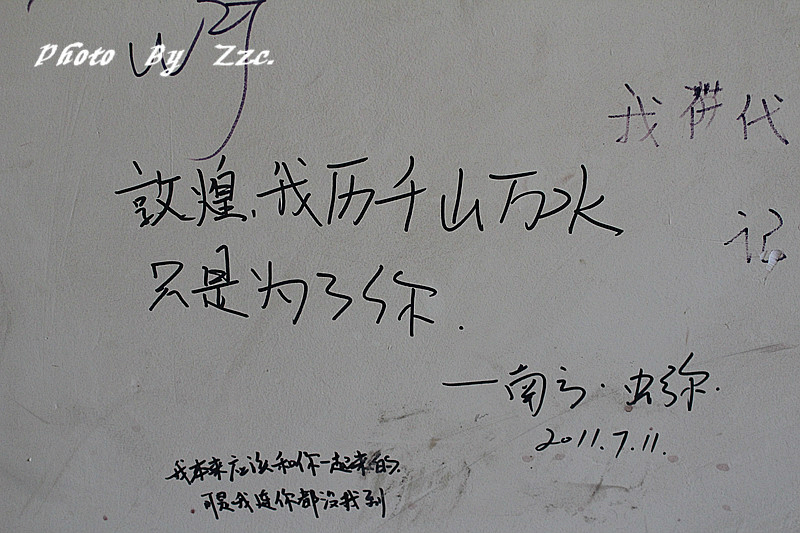 Photo By Zzc.
我供代
敦煌,我历千山万水
记
只是为了你.
—南
2011.7.11.
我本来应该和你一起来的.
可是我连你都没找到